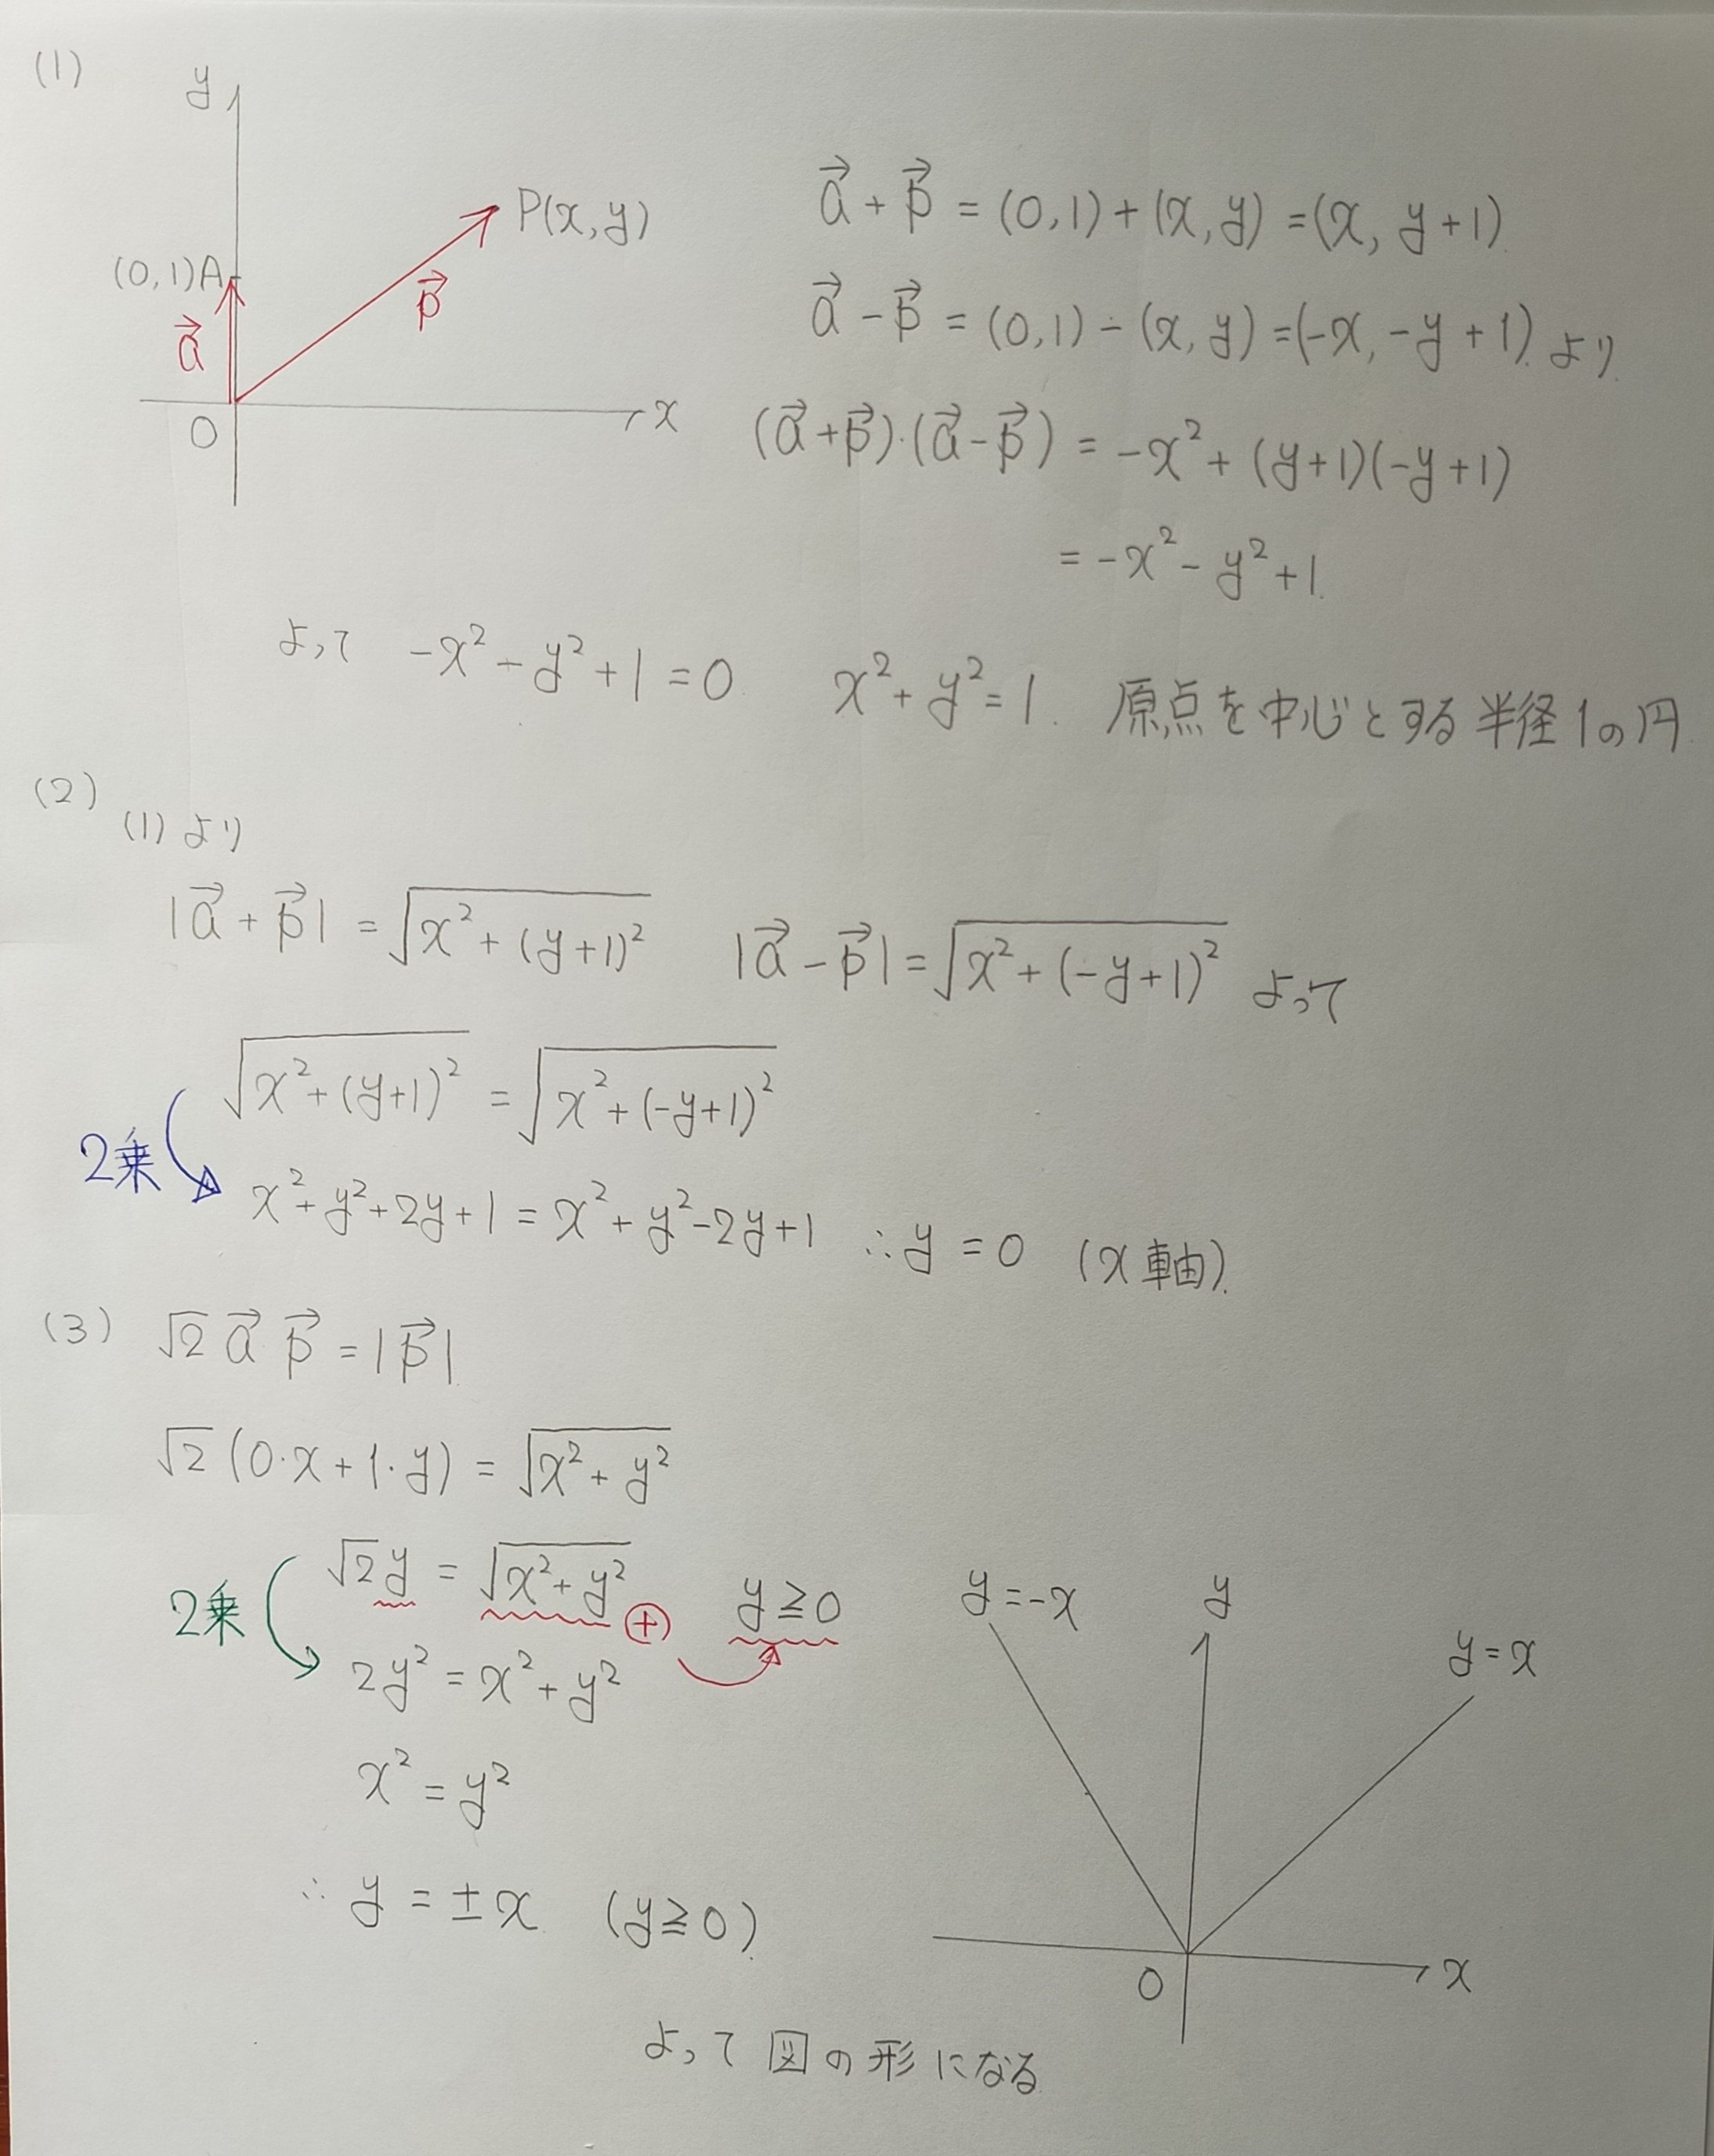 (1)
y
P(x,y)
(0,1)A
a⃗
p⃗
O
x
a⃗ + p⃗ = (0,1)+(x,y) =(x, y+1)
a⃗ - p⃗ = (0,1)-(x,y) =(-x, -y+1) より
(a⃗+p⃗)·(a⃗-p⃗) = -x²+(y+1)(-y+1)
= -x²-y²+1
よって -x²-y²+1=0 x²+y²=1. 原点を中心とする半径1の円
(2)
(1)より
|a⃗+p⃗| = √(x²+(y+1)²) |a⃗-p⃗| = √(x²+(-y+1)²) よって
√(x²+(y+1)²) = √(x²+(-y+1)²)
2乗
x²+y²+2y+1 = x²+y²-2y+1 ∴y=0 (x軸)
(3) √2 a⃗ p⃗ = |p⃗|
√2(0·x+1·y) = √(x²+y²)
√2y = √(x²+y²) ⊕ y≧0
2乗
2y² = x²+y²
x² = y²
∴ y = ±x (y≧0)
y=-x
y
y=x
O
x
よって図の形になる